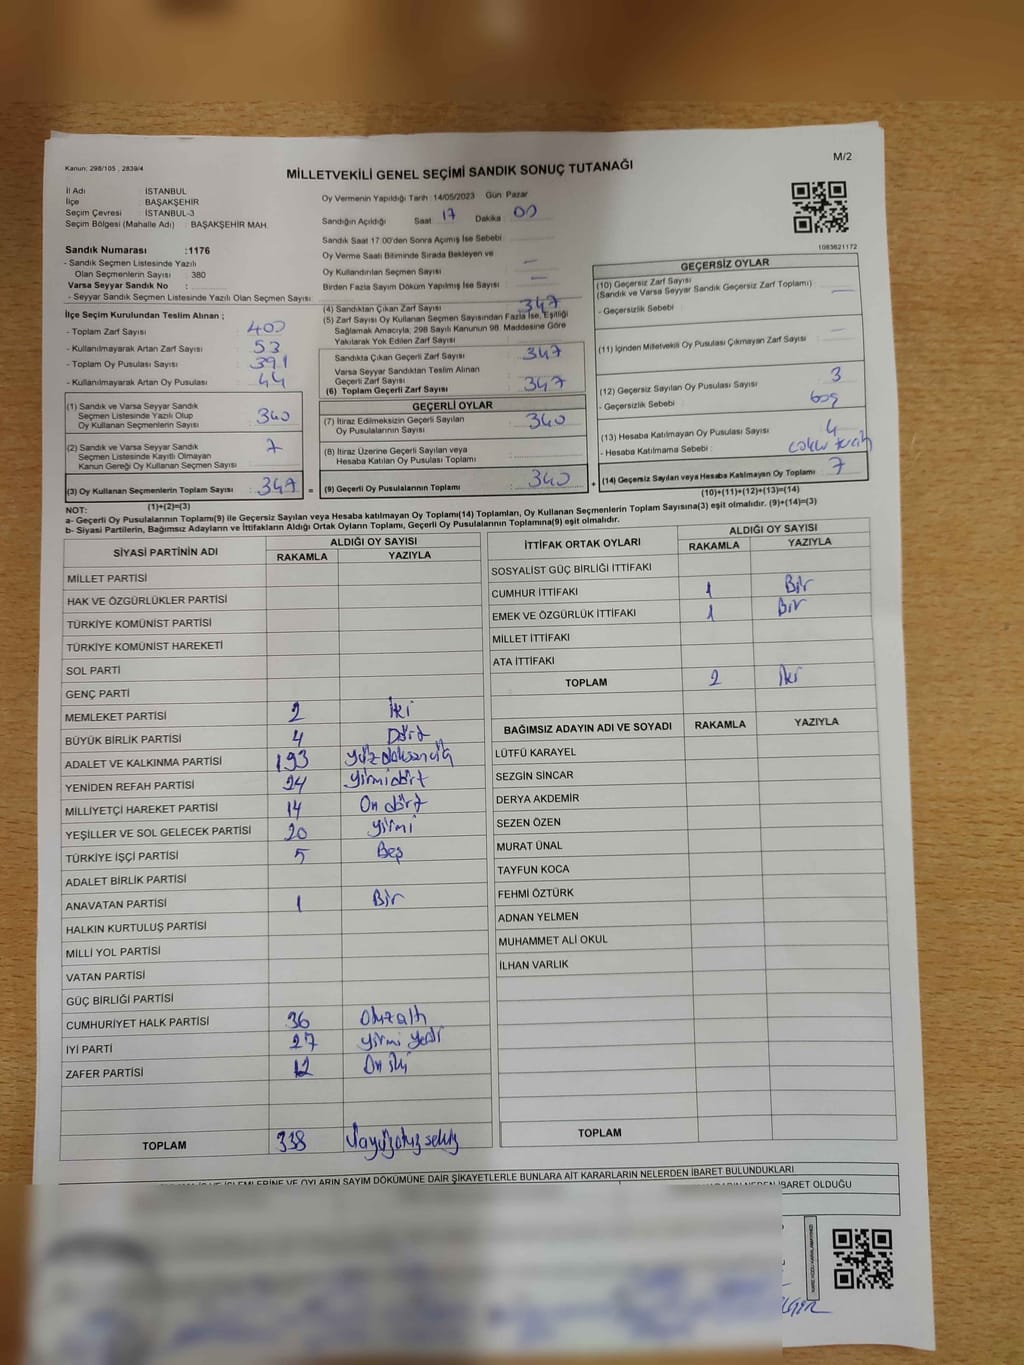 Kanun: 298/105 , 2839/4
MİLLETVEKİLİ GENEL SEÇİMİ SANDIK SONUÇ TUTANAĞI
M/2
İl Adı İSTANBUL
İlçe BAŞAKŞEHİR
Seçim Çevresi İSTANBUL-3
Seçim Bölgesi (Mahalle Adı) BAŞAKŞEHİR MAH.
Oy Vermenin Yapıldığı Tarih :14/05/2023 Gün Pazar
Sandığın Açıldığı Saat 17 Dakika 00
Sandık Saat 17:00'den Sonra Açımış İse Sebebi :
Oy Verme Saati Bitiminde Sırada Bekleyen ve
Oy Kullandırılan Seçmen Sayısı : —
Birden Fazla Sayım Döküm Yapılmış İse Sayısı : —
1083621172
Sandık Numarası :1176
- Sandık Seçmen Listesinde Yazılı
Olan Seçmenlerin Sayısı : 380
Varsa Seyyar Sandık No :
- Seyyar Sandık Seçmen Listesinde Yazılı Olan Seçmen Sayısı:
İlçe Seçim Kurulundan Teslim Alınan ;
- Toplam Zarf Sayısı : 400
- Kullanılmayarak Artan Zarf Sayısı : 53
- Toplam Oy Pusulası Sayısı : 391
- Kullanılmayarak Artan Oy Pusulası : 44
(1) Sandık ve Varsa Seyyar Sandık
Seçmen Listesinde Yazılı Olup
Oy Kullanan Seçmenlerin Sayısı : 340
(2) Sandık ve Varsa Seyyar Sandık
Seçmen Listesinde Kayıtlı Olmayan
Kanun Gereği Oy Kullanan Seçmen Sayısı : 7
(3) Oy Kullanan Seçmenlerin Toplam Sayısı : 347
(1)+(2)=(3)
(4) Sandıktan Çıkan Zarf Sayısı : 347
(5) Zarf Sayısı Oy Kullanan Seçmen Sayısından Fazla İse, Eşitliği
Sağlamak Amacıyla, 298 Sayılı Kanunun 98. Maddesine Göre
Yakılarak Yok Edilen Zarf Sayısı :
Sandıkta Çıkan Geçerli Zarf Sayısı : 347
Varsa Seyyar Sandıktan Teslim Alınan
Geçerli Zarf Sayısı :
(6) Toplam Geçerli Zarf Sayısı : 347
GEÇERLİ OYLAR
(7) İtiraz Edilmeksizin Geçerli Sayılan
Oy Pusulalarının Sayısı : 340
(8) İtiraz Üzerine Geçerli Sayılan veya
Hesaba Katılan Oy Pusulası Toplamı :
= (9) Geçerli Oy Pusulalarının Toplamı : 340 +
GEÇERSİZ OYLAR
(10) Geçersiz Zarf Sayısı
(Sandık ve Varsa Seyyar Sandık Geçersiz Zarf Toplamı) : —
- Geçersizlik Sebebi :
(11) İçinden Milletvekili Oy Pusulası Çıkmayan Zarf Sayısı : —
(12) Geçersiz Sayılan Oy Pusulası Sayısı : 3
- Geçersizlik Sebebi : boş
(13) Hesaba Katılmayan Oy Pusulası Sayısı : 4
- Hesaba Katılmama Sebebi :
(14) Geçersiz Sayılan veya Hesaba Katılmayan Oy Toplamı : 7
(10)+(11)+(12)+(13)=(14)
NOT:
a- Geçerli Oy Pusulalarının Toplamı(9) ile Geçersiz Sayılan veya Hesaba katılmayan Oy Toplamı(14) Toplamları, Oy Kullanan Seçmenlerin Toplam Sayısına(3) eşit olmalıdır. (9)+(14)=(3)
b- Siyasi Partilerin, Bağımsız Adayların ve İttifakların Aldığı Ortak Oyların Toplamı, Geçerli Oy Pusulalarının Toplamına(9) eşit olmalıdır.
SİYASİ PARTİNİN ADI ALDIĞI OY SAYISI
RAKAMLA YAZIYLA
MİLLET PARTİSİ
HAK VE ÖZGÜRLÜKLER PARTİSİ
TÜRKİYE KOMÜNİST PARTİSİ
TÜRKİYE KOMÜNİST HAREKETİ
SOL PARTİ
GENÇ PARTİ
MEMLEKET PARTİSİ 2 İki
BÜYÜK BİRLİK PARTİSİ 4 Dört
ADALET VE KALKINMA PARTİSİ 193 yüz doksanüç
YENİDEN REFAH PARTİSİ 24 yirmidört
MİLLİYETÇİ HAREKET PARTİSİ 14 On dört
YEŞİLLER VE SOL GELECEK PARTİSİ 20 yirmi
TÜRKİYE İŞÇİ PARTİSİ 5 Beş
ADALET BİRLİK PARTİSİ
ANAVATAN PARTİSİ 1 Bir
HALKIN KURTULUŞ PARTİSİ
MİLLİ YOL PARTİSİ
VATAN PARTİSİ
GÜÇ BİRLİĞİ PARTİSİ
CUMHURİYET HALK PARTİSİ 36 Otuzaltı
İYİ PARTİ 27 yirmi yedi
ZAFER PARTİSİ 12 On iki
TOPLAM 338 üçyüzotuz sekiz
İTTİFAK ORTAK OYLARI ALDIĞI OY SAYISI
RAKAMLA YAZIYLA
SOSYALİST GÜÇ BİRLİĞİ İTTİFAKI
CUMHUR İTTİFAKI 1 Bir
EMEK VE ÖZGÜRLÜK İTTİFAKI 1 Bir
MİLLET İTTİFAKI
ATA İTTİFAKI
TOPLAM 2 İki
BAĞIMSIZ ADAYIN ADI VE SOYADI RAKAMLA YAZIYLA
LÜTFÜ KARAYEL
SEZGİN SİNCAR
DERYA AKDEMİR
SEZEN ÖZEN
MURAT ÜNAL
TAYFUN KOCA
FEHMİ ÖZTÜRK
ADNAN YELMEN
MUHAMMET ALİ OKUL
İLHAN VARLIK
TOPLAM
OYLARIN SAYIM DÖKÜMÜNE DAİR ŞİKAYETLERLE BUNLARA AİT KARARLARIN NELERDEN İBARET BULUNDUKLARI
İBARET OLDUĞU